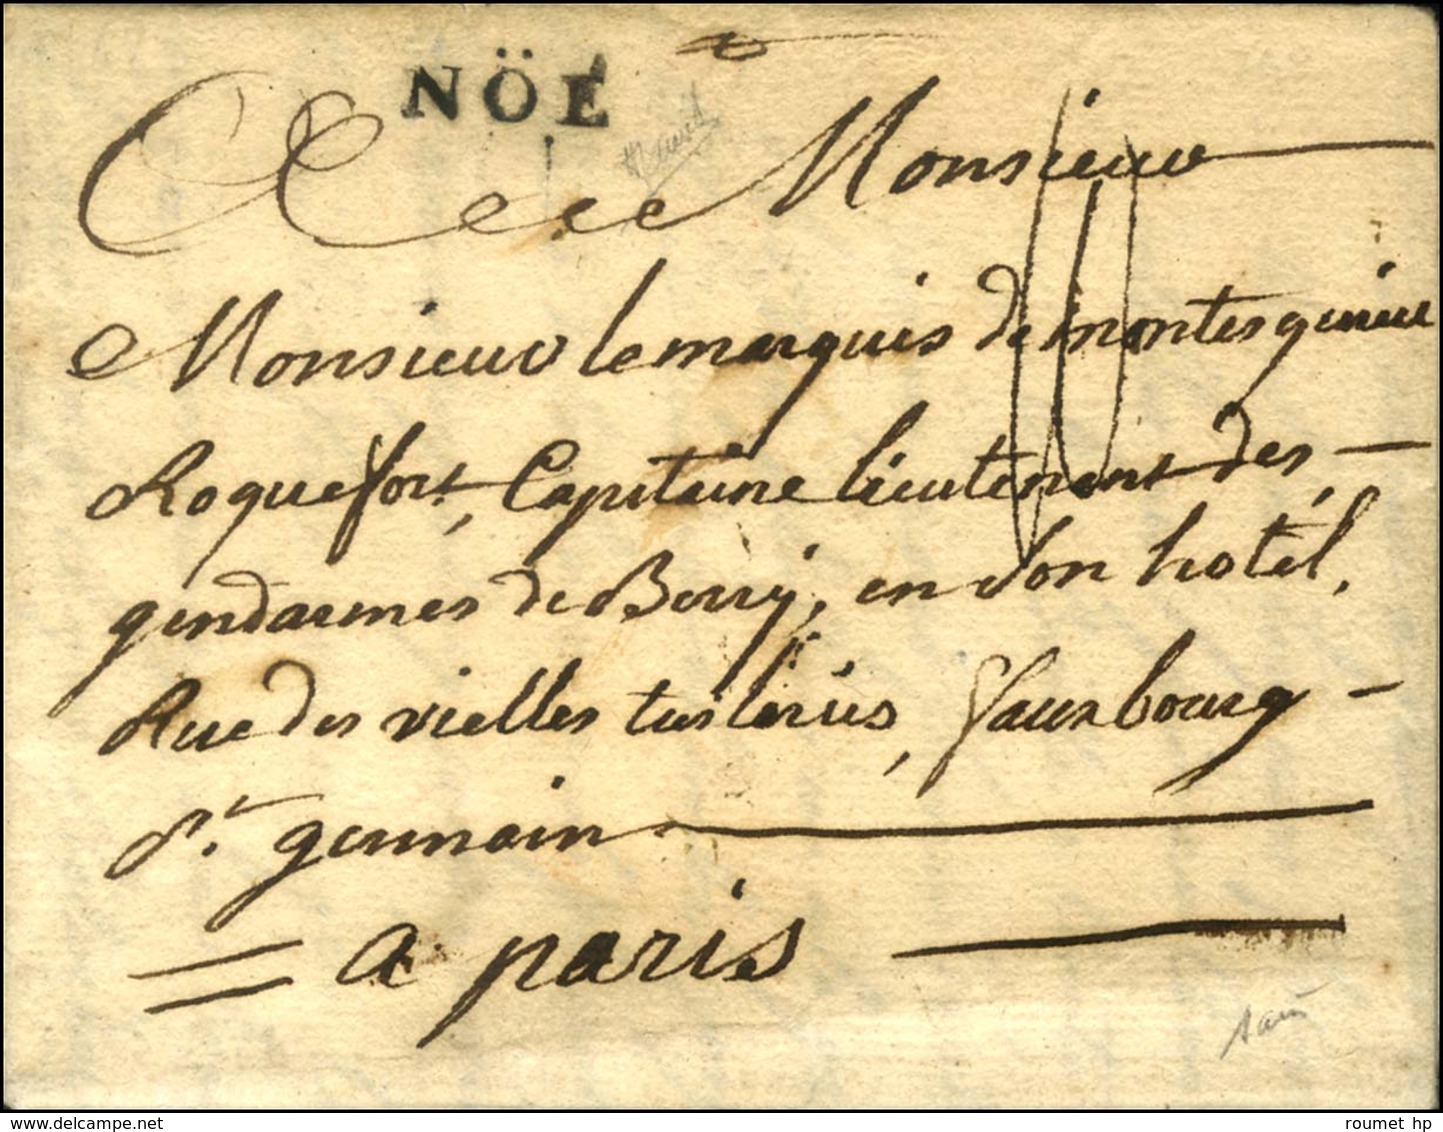 NÖE
A Monsieur
Monsieur le marquis de montesquieu
Roquefort, Capitaine lieutenant des
gendarmes de Berry, en son hotel,
Rue des vielles tuileries, fauxbourg
St. germain
a paris
roumet hp